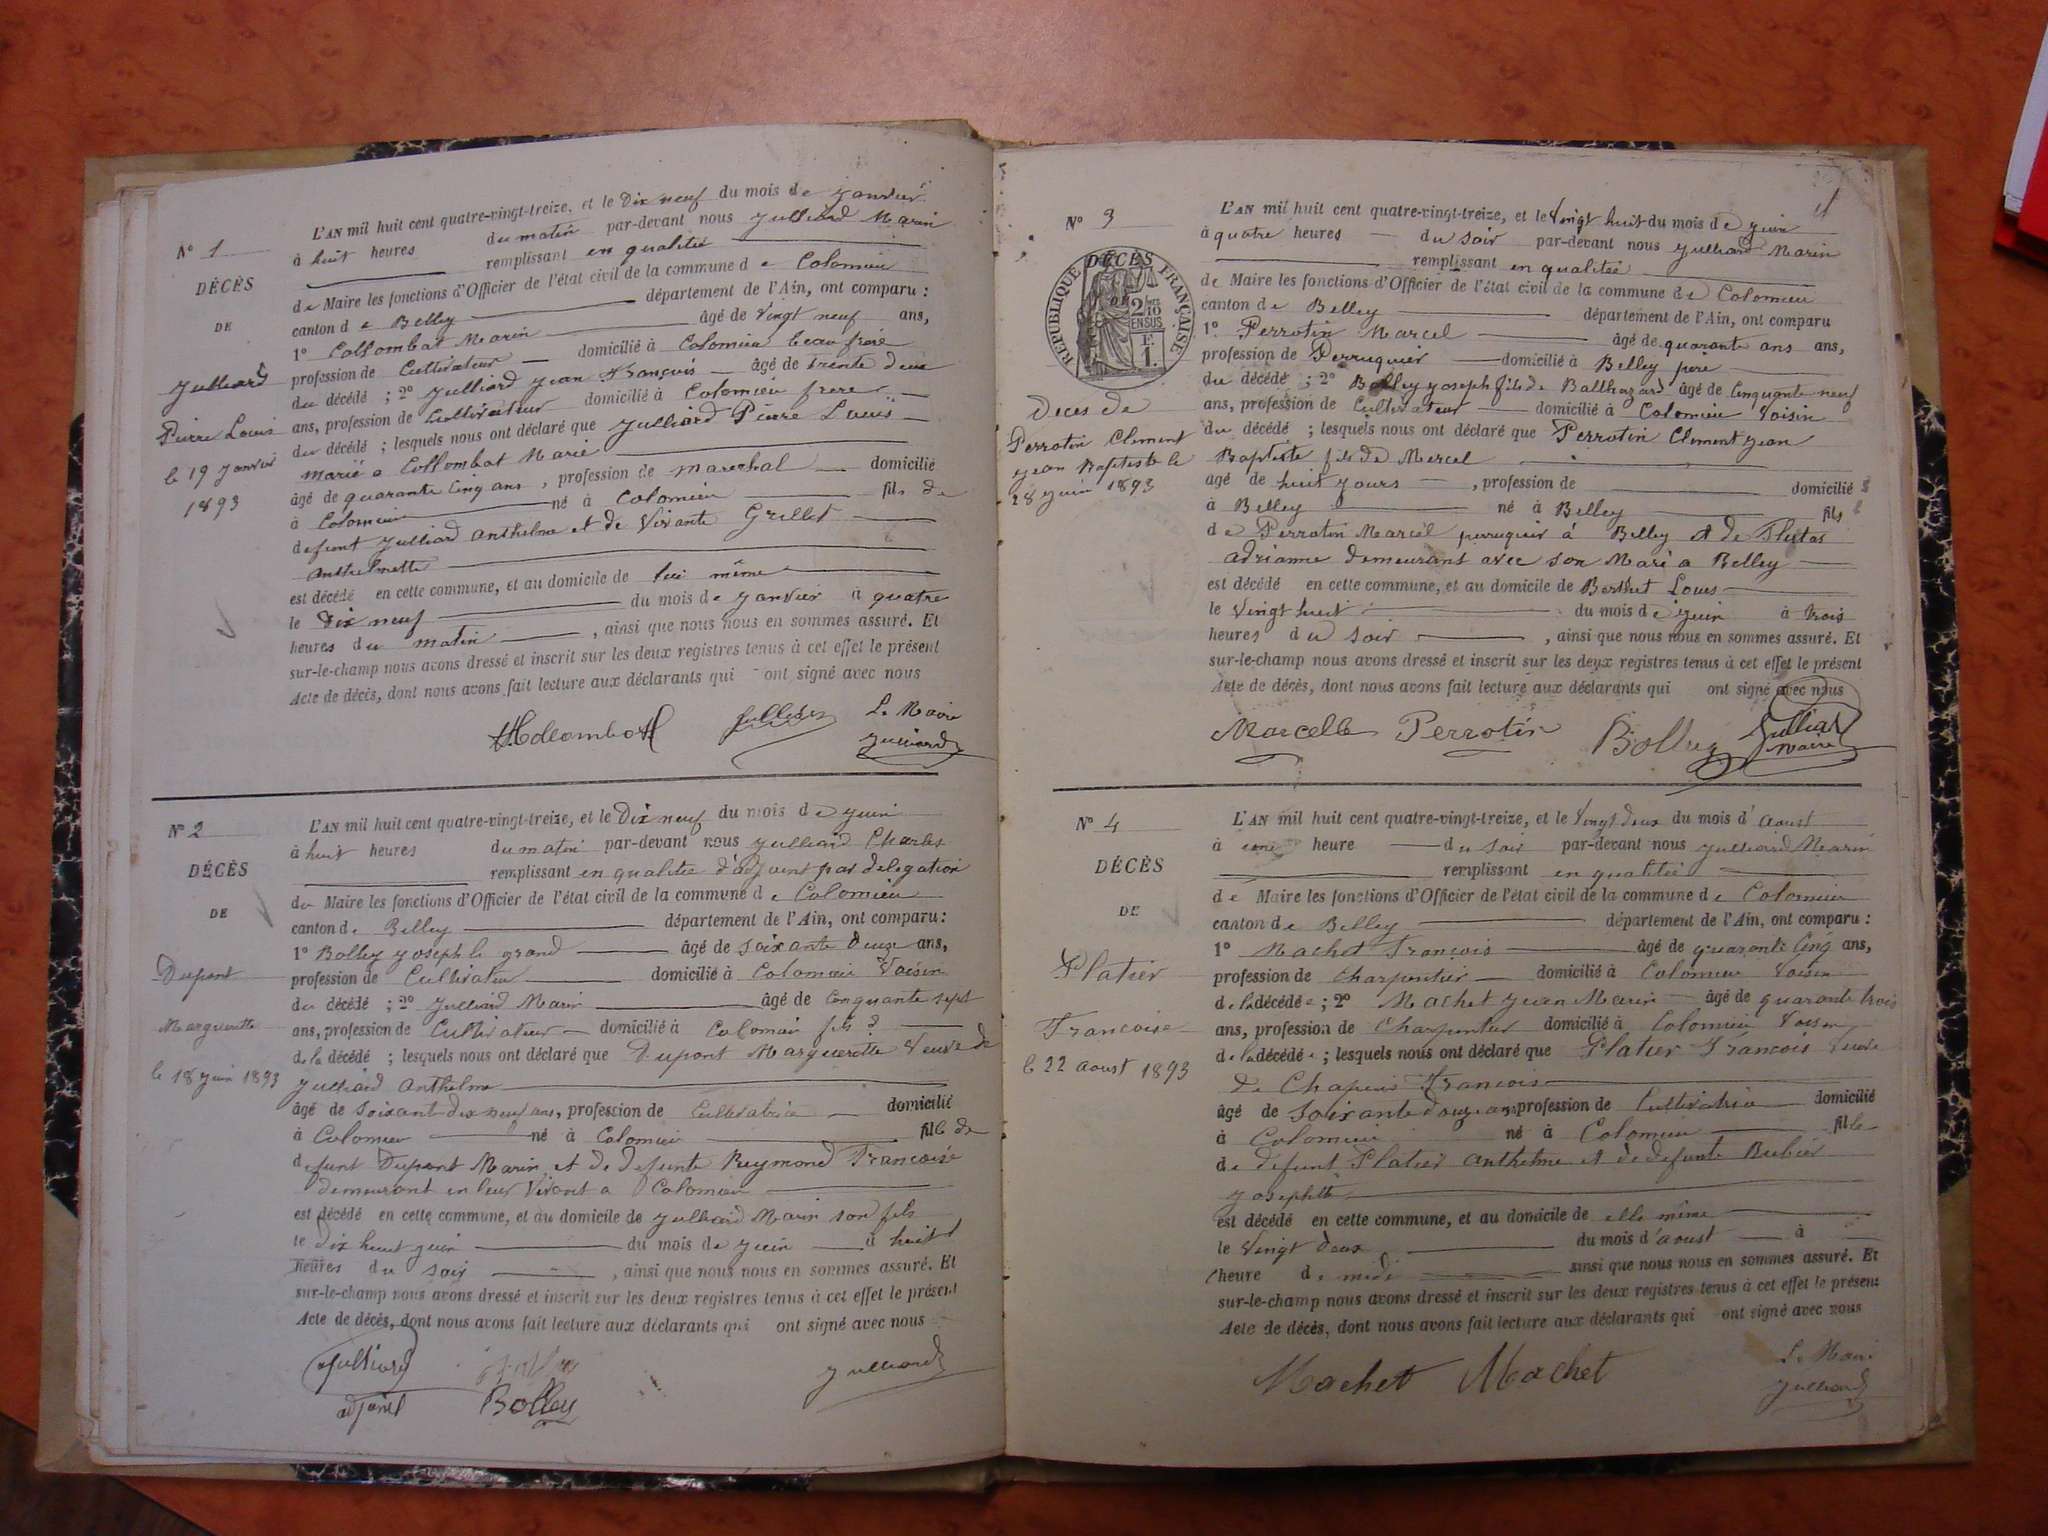 N° 1
DÉCÈS
DE
Julliard
Pierre Louis
le 19 Janvier
1893
L'AN mil huit cent quatre-vingt-treize, et le Dix neuf du mois de Janvier
à huit heures du matin par-devant nous Julliard Marin
remplissant en qualitée
de Maire les fonctions d'Officier de l'état civil de la commune de Colomieu
canton de Belley département de l'Ain, ont comparu :
1° Collombat Marin âgé de Vingt neuf ans,
profession de Cultivateur domicilié à Colomieu beau frère
du décédé ; 2° Julliard Jean François âgé de trente deux
ans, profession de Cultivateur domicilié à Colomieu frere
du décédé ; lesquels nous ont déclaré que Julliard Pierre Louis
marié a Collombat Marie
âgé de quarante Cinq ans, profession de marechal domicilié
à Colomieu né à Colomieu fils de
defunt Julliard Anthelme et de Vivante Grillet
Anthelmette
est décédé en cette commune, et au domicile de lui même
le Dix neuf du mois de Janvier à quatre
heures du matin, ainsi que nous nous en sommes assuré. Et
sur-le-champ nous avons dressé et inscrit sur les deux registres tenus à cet effet le présent
Acte de décès, dont nous avons fait lecture aux déclarants qui ont signé avec nous
Le Maire
Julliard
N° 2
DÉCÈS
DE
Dupont
Marguerette
le 18 Juin 1893
L'AN mil huit cent quatre-vingt-treize, et le Dix neuf du mois de Juin
à huit heures du matin par-devant nous Julliard Charles
remplissant en qualitée d'adjoint par delegation
du Maire les fonctions d'Officier de l'état civil de la commune de Colomieu
canton de Belley département de l'Ain, ont comparu :
1° Bolley Joseph le grand âgé de Soixante douze ans,
profession de Cultivateur domicilié à Colomieu Voisin
du décédé ; 2° Julliard Marin âgé de Cinquante sept
ans, profession de Cultivateur domicilié à Colomieu fils
de la décédé ; lesquels nous ont déclaré que Dupont Marguerette Veuve de
Julliard Anthelme
âgé de Soixant dix neuf ans, profession de Cultivatrice domicilié
à Colomieu né à Colomieu fille de
defunt Dupont Marin et de defunte Reymond Francoise
demeurant en leur Vivant a Colomieu
est décédé en cette commune, et au domicile de Julliard Marin son fils
le Dix huit Juin du mois de Juin à huit
heures du soir, ainsi que nous nous en sommes assuré. Et
sur-le-champ nous avons dressé et inscrit sur les deux registres tenus à cet effet le présent
Acte de décès, dont nous avons fait lecture aux déclarants qui ont signé avec nous
Julliard
Bolley
Julliard
N° 3
RÉPUBLIQUE FRANÇAISE
DÉCÈS
2/10 EN SUS
F.
1.
Deces de
Perrotin Clement
Jean Baptiste le
28 Juin 1893
L'AN mil huit cent quatre-vingt-treize, et le Vingt huit du mois de Juin
à quatre heures du soir par-devant nous Julliard Marin
remplissant en qualitée
de Maire les fonctions d'Officier de l'état civil de la commune de Colomieu
canton de Belley département de l'Ain, ont comparu
1° Perrotin Marcel âgé de quarante ans ans,
profession de Perruquier domicilié à Belley père
du décédé ; 2° Bolley Joseph fils de Balthazard âgé de Cinquante neuf
ans, profession de Cultivateur domicilié à Colomieu Voisin
du décédé ; lesquels nous ont déclaré que Perrotin Clement Jean
Baptiste fils de Mercel
âgé de huit Jours, profession de domicilié
à Belley né à Belley fils
de Perrotin Marcel perruquier à Belley et de
adrianne demeurant avec son Mari a Belley
est décédé en cette commune, et au domicile de Berthet Louis
le Vingt huit du mois de Juin à trois
heures du soir, ainsi que nous nous en sommes assuré. Et
sur-le-champ nous avons dressé et inscrit sur les deux registres tenus à cet effet le présent
Acte de décès, dont nous avons fait lecture aux déclarants qui ont signé avec nous
Marcelle Perrotin Bolley Julliard
maire
N° 4
DÉCÈS
DE
Platier
Francoise
le 22 aoust 1893
L'AN mil huit cent quatre-vingt-treize, et le Vingt deux du mois d'aoust
à une heure du soir par-devant nous Julliard Marin
remplissant en qualitée
de Maire les fonctions d'Officier de l'état civil de la commune de Colomieu
canton de Belley département de l'Ain, ont comparu :
1° Machet François âgé de quarante Cinq ans,
profession de Charpentier domicilié à Colomieu Voisin
de la décédée ; 2° Machet Jean Marin âgé de quarante trois
ans, profession de Charpentier domicilié à Colomieu Voisin
de la décédée ; lesquels nous ont déclaré que Platier Francois veuve
de Chapuis Francois
âgé de Soixante douze ans profession de Cultivatrice domicilié
à Colomieu né à Colomieu fille
de defunt Platier Anthelme et de defunte Bubier
Josephte
est décédé en cette commune, et au domicile de elle même
le Vingt deux du mois d'aoust à
heure de midi ainsi que nous nous en sommes assuré. Et
sur-le-champ nous avons dressé et inscrit sur les deux registres tenus à cet effet le présent
Acte de décès, dont nous avons fait lecture aux déclarants qui ont signé avec nous
Machet Machet
Le Maire
Julliard